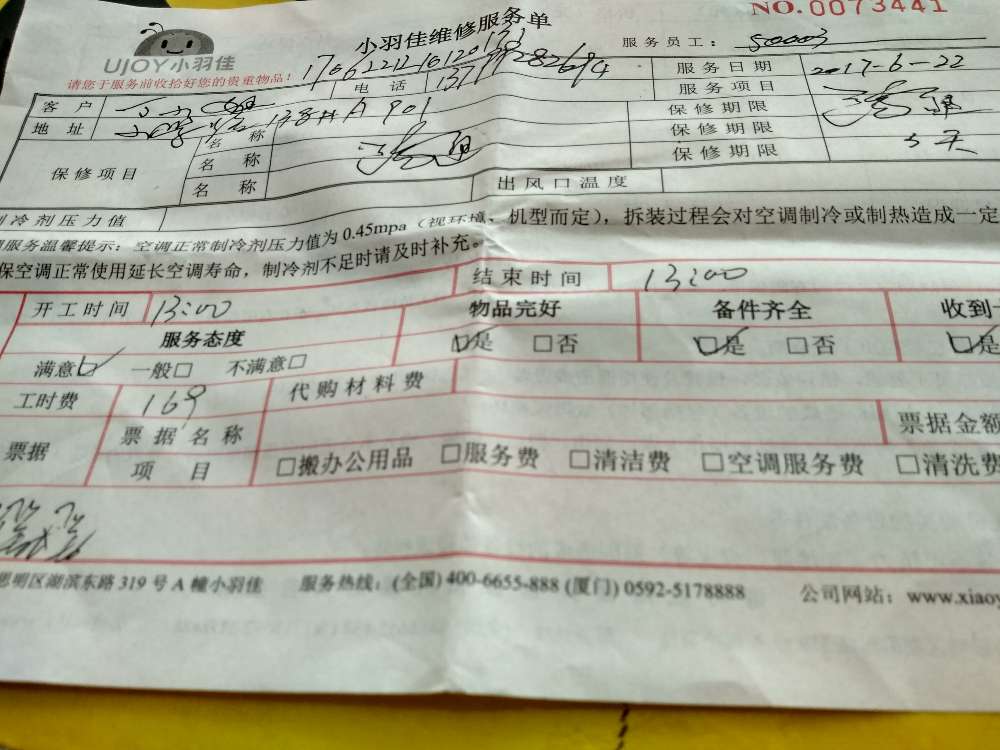 NO.0073441
小羽佳维修服务单
UJOY小羽佳
服务员工： 50003
请您于服务前收拾好您的贵重物品！
客户 电话 服务日期 2017-6-22
地址 A 901 服务项目
保修项目 名称 保修期限
名称 疏通 保修期限
名称 保修期限
出风口温度
制冷剂压力值
服务温馨提示：空调正常制冷剂压力值为 0.45mpa（视环境、机型而定），拆装过程会对空调制冷或制热造成一定
保空调正常使用延长空调寿命，制冷剂不足时请及时补充。
开工时间 13:00 结束时间 13:00
服务态度 物品完好 备件齐全 收到一
满意☑ 一般□ 不满意□ ☑是 □否 ☑是 □否 ☑是
工时费 169 代购材料费
票据 票据名称 票据金额
项目 □搬办公用品 □服务费 □清洁费 □空调服务费 □清洗费
思明区湖滨东路 319 号 A 幢小羽佳 服务热线：(全国) 400-6655-888 (厦门) 0592-5178888 公司网站：www.xiaoy